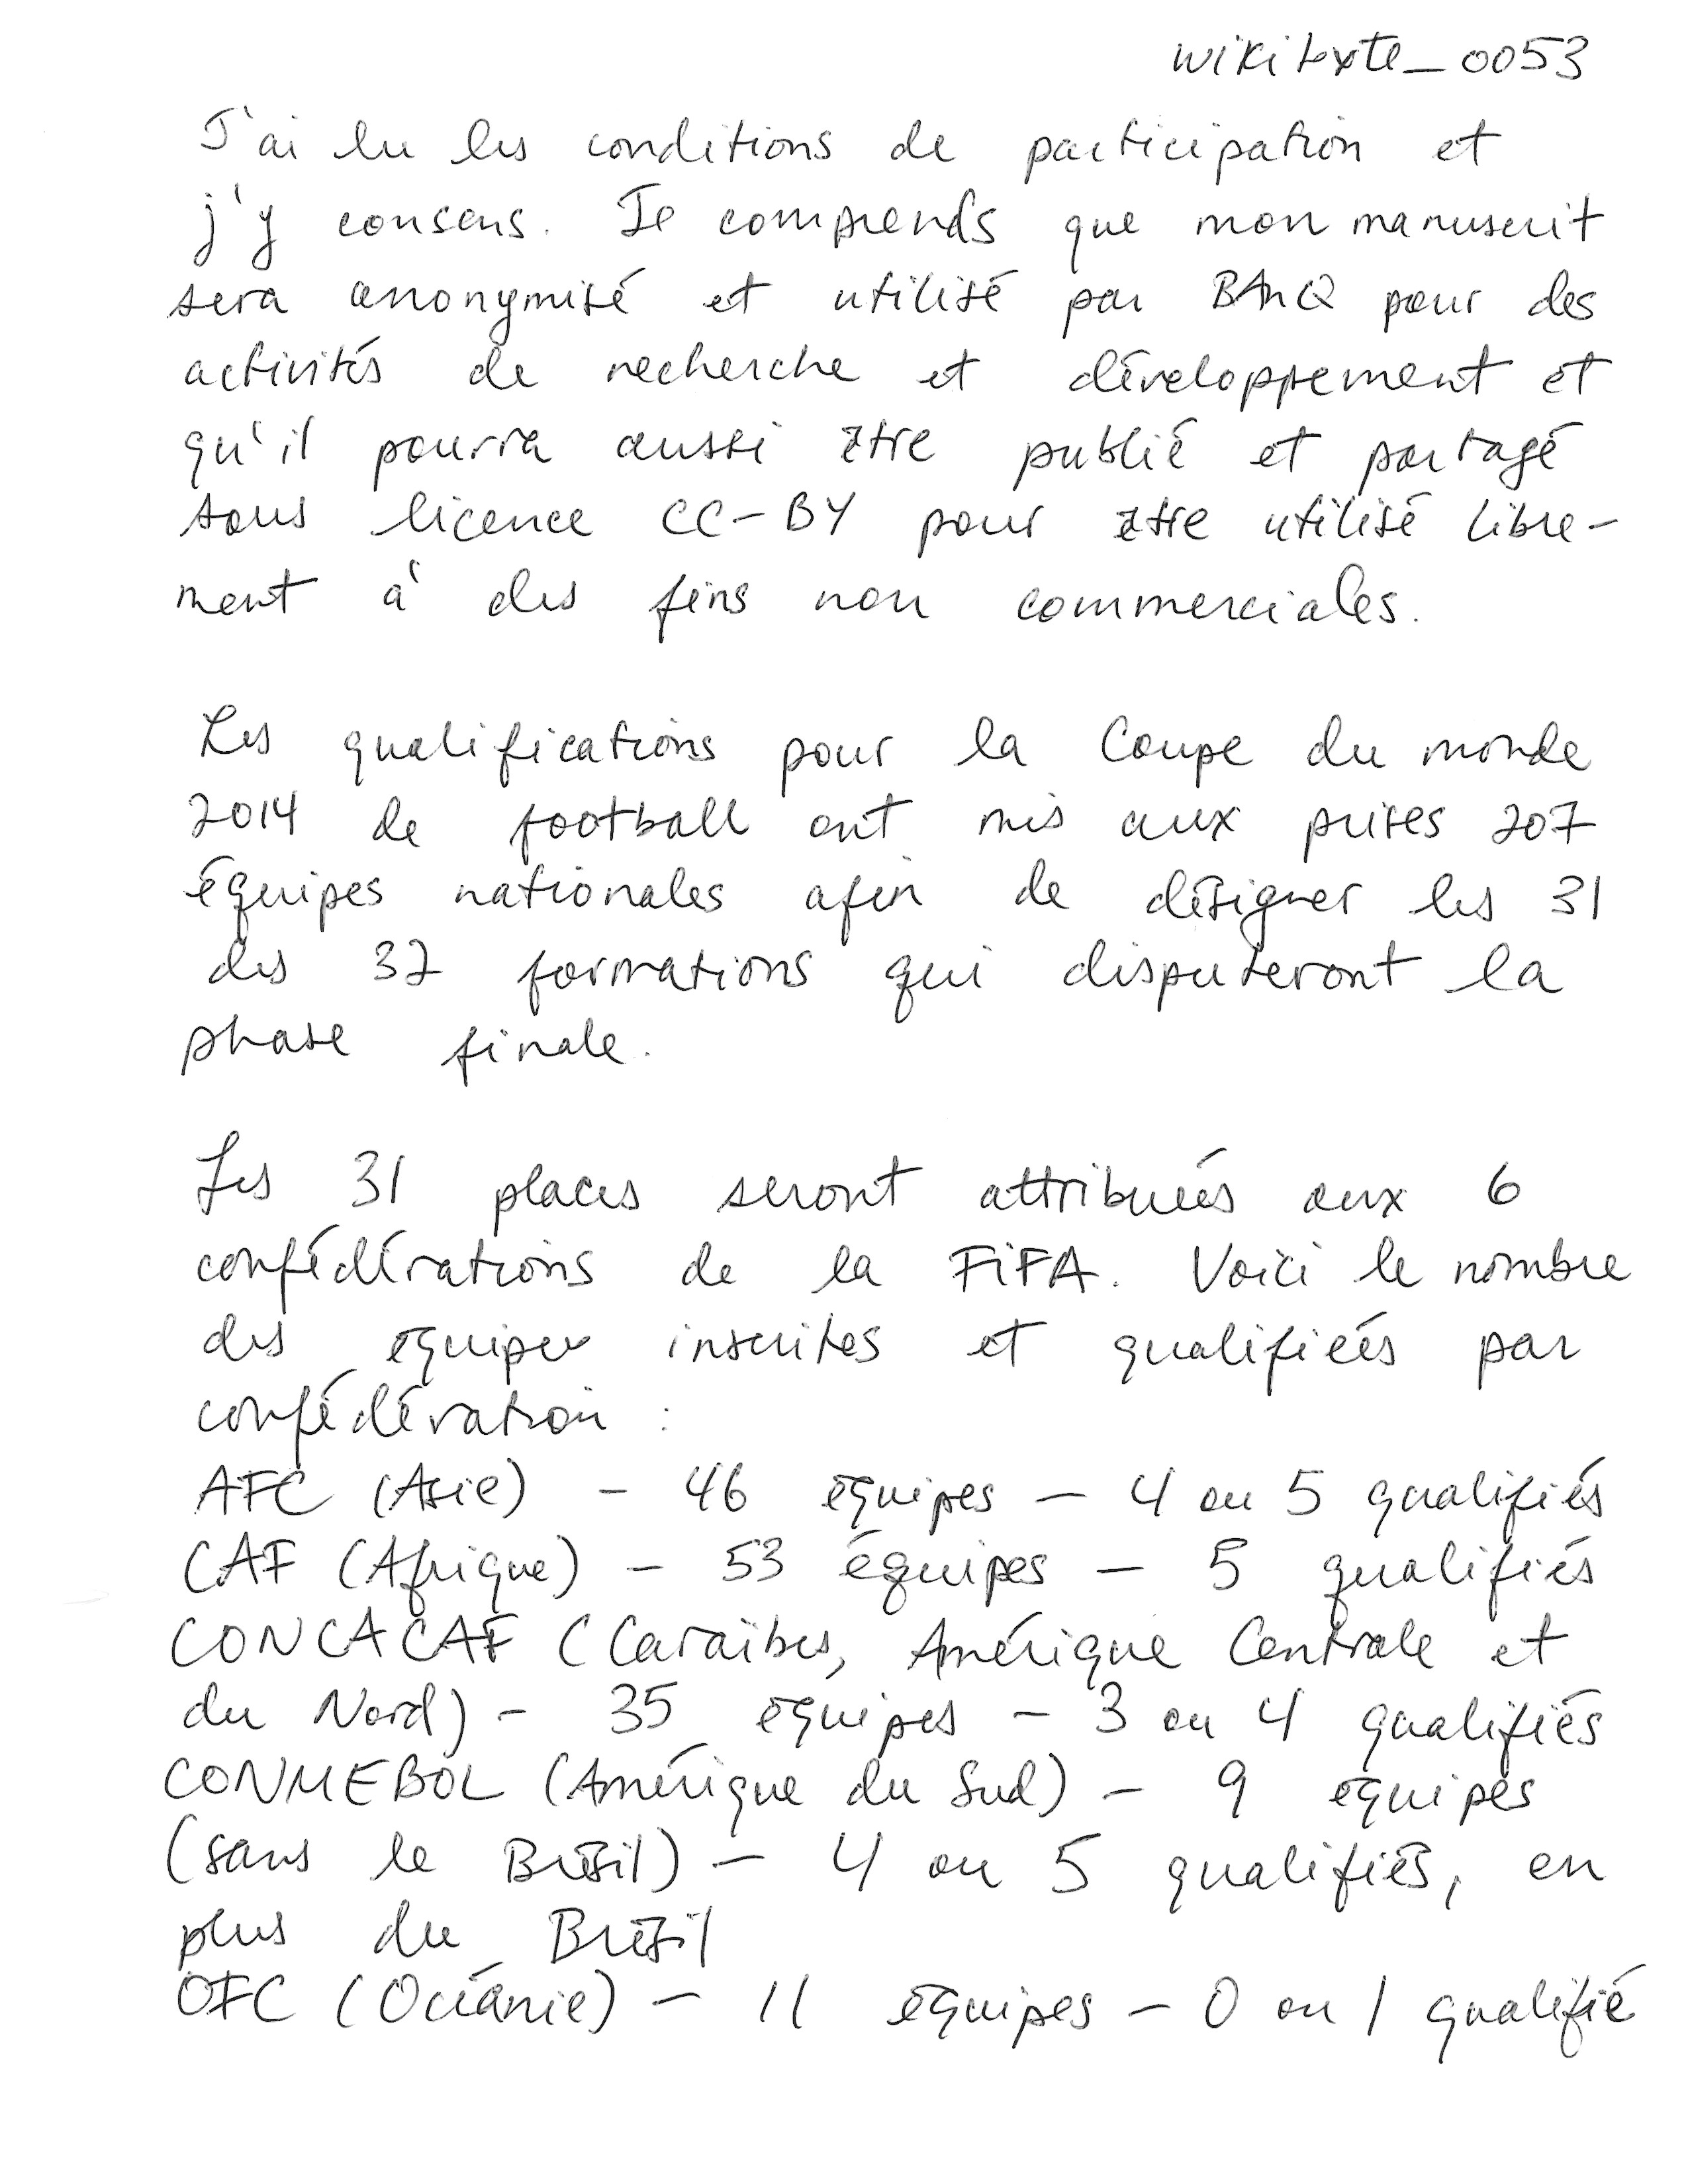 wikitexte_0053
J'ai lu les conditions de participation et
j'y consens. Je comprends que mon manuscrit
sera anonymisé et utilisé par BAnQ pour des
activités de recherche et développement et
qu'il pourra aussi être publié et partagé
sous licence CC-BY pour être utilisé libre-
ment à des fins non commerciales.
Les qualifications pour la Coupe du monde
2014 de football ont mis aux prises 207
équipes nationales afin de désigner les 31
des 32 formations qui disputeront la
phase finale.
Les 31 places seront attribuées aux 6
confédérations de la FIFA. Voici le nombre
des équipes inscrites et qualifiées par
confédération :
AFC (Asie) - 46 équipes - 4 ou 5 qualifiés
CAF (Afrique) - 53 équipes - 5 qualifiés
CONCACAF (Caraïbes, Amérique Centrale et
du Nord) - 35 équipes - 3 ou 4 qualifiés
CONMEBOL (Amérique du Sud) - 9 équipes
(sans le Brésil) - 4 ou 5 qualifiés, en
plus du Brésil
OFC (Océanie) - 11 équipes - 0 ou 1 qualifié